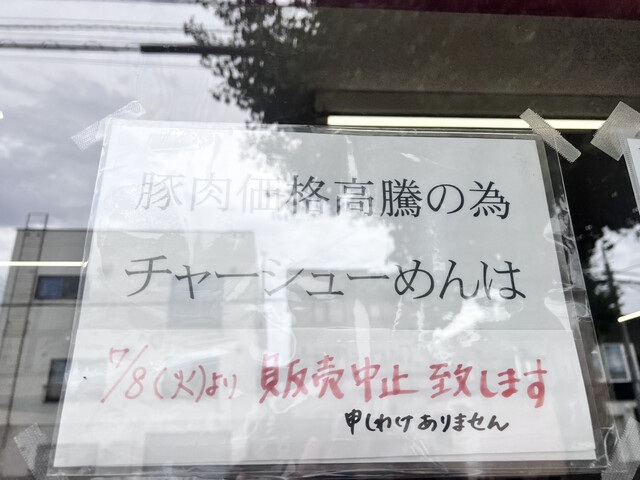 豚肉価格高騰の為
チャーシューめんは
7/8(火)より 販売中止 致します
申しわけありません